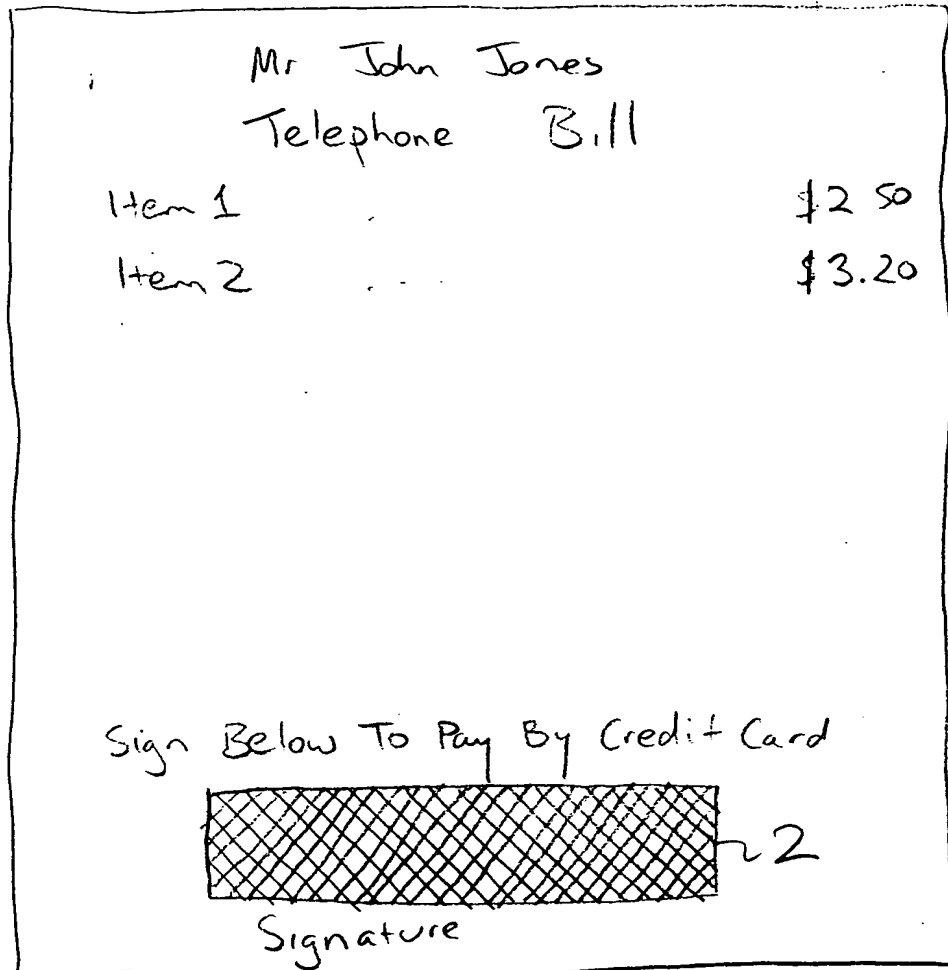 Mr John Jones
Telephone Bill
Item 1 $2 50
Item 2 $3.20
Sign Below To Pay By Credit Card
2
Signature